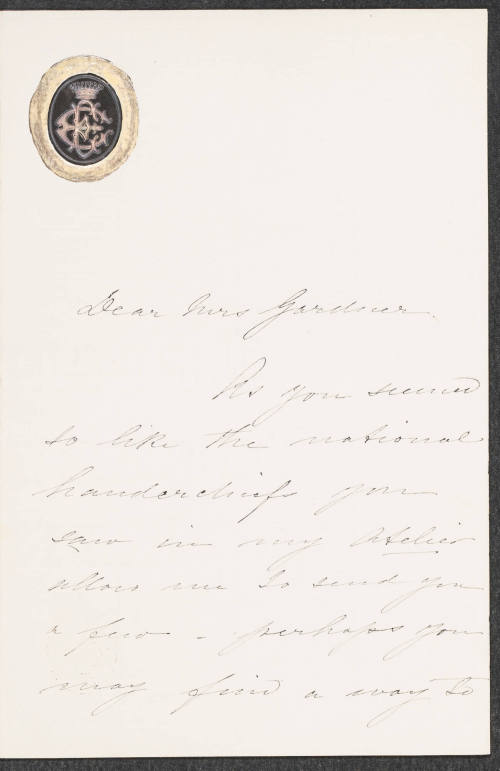 Dear Mrs Gardner.
As you seemed
to like the national
handerchiefs you
saw in my Atelier
allow me to send you
a few - perhaps you
may find a way to